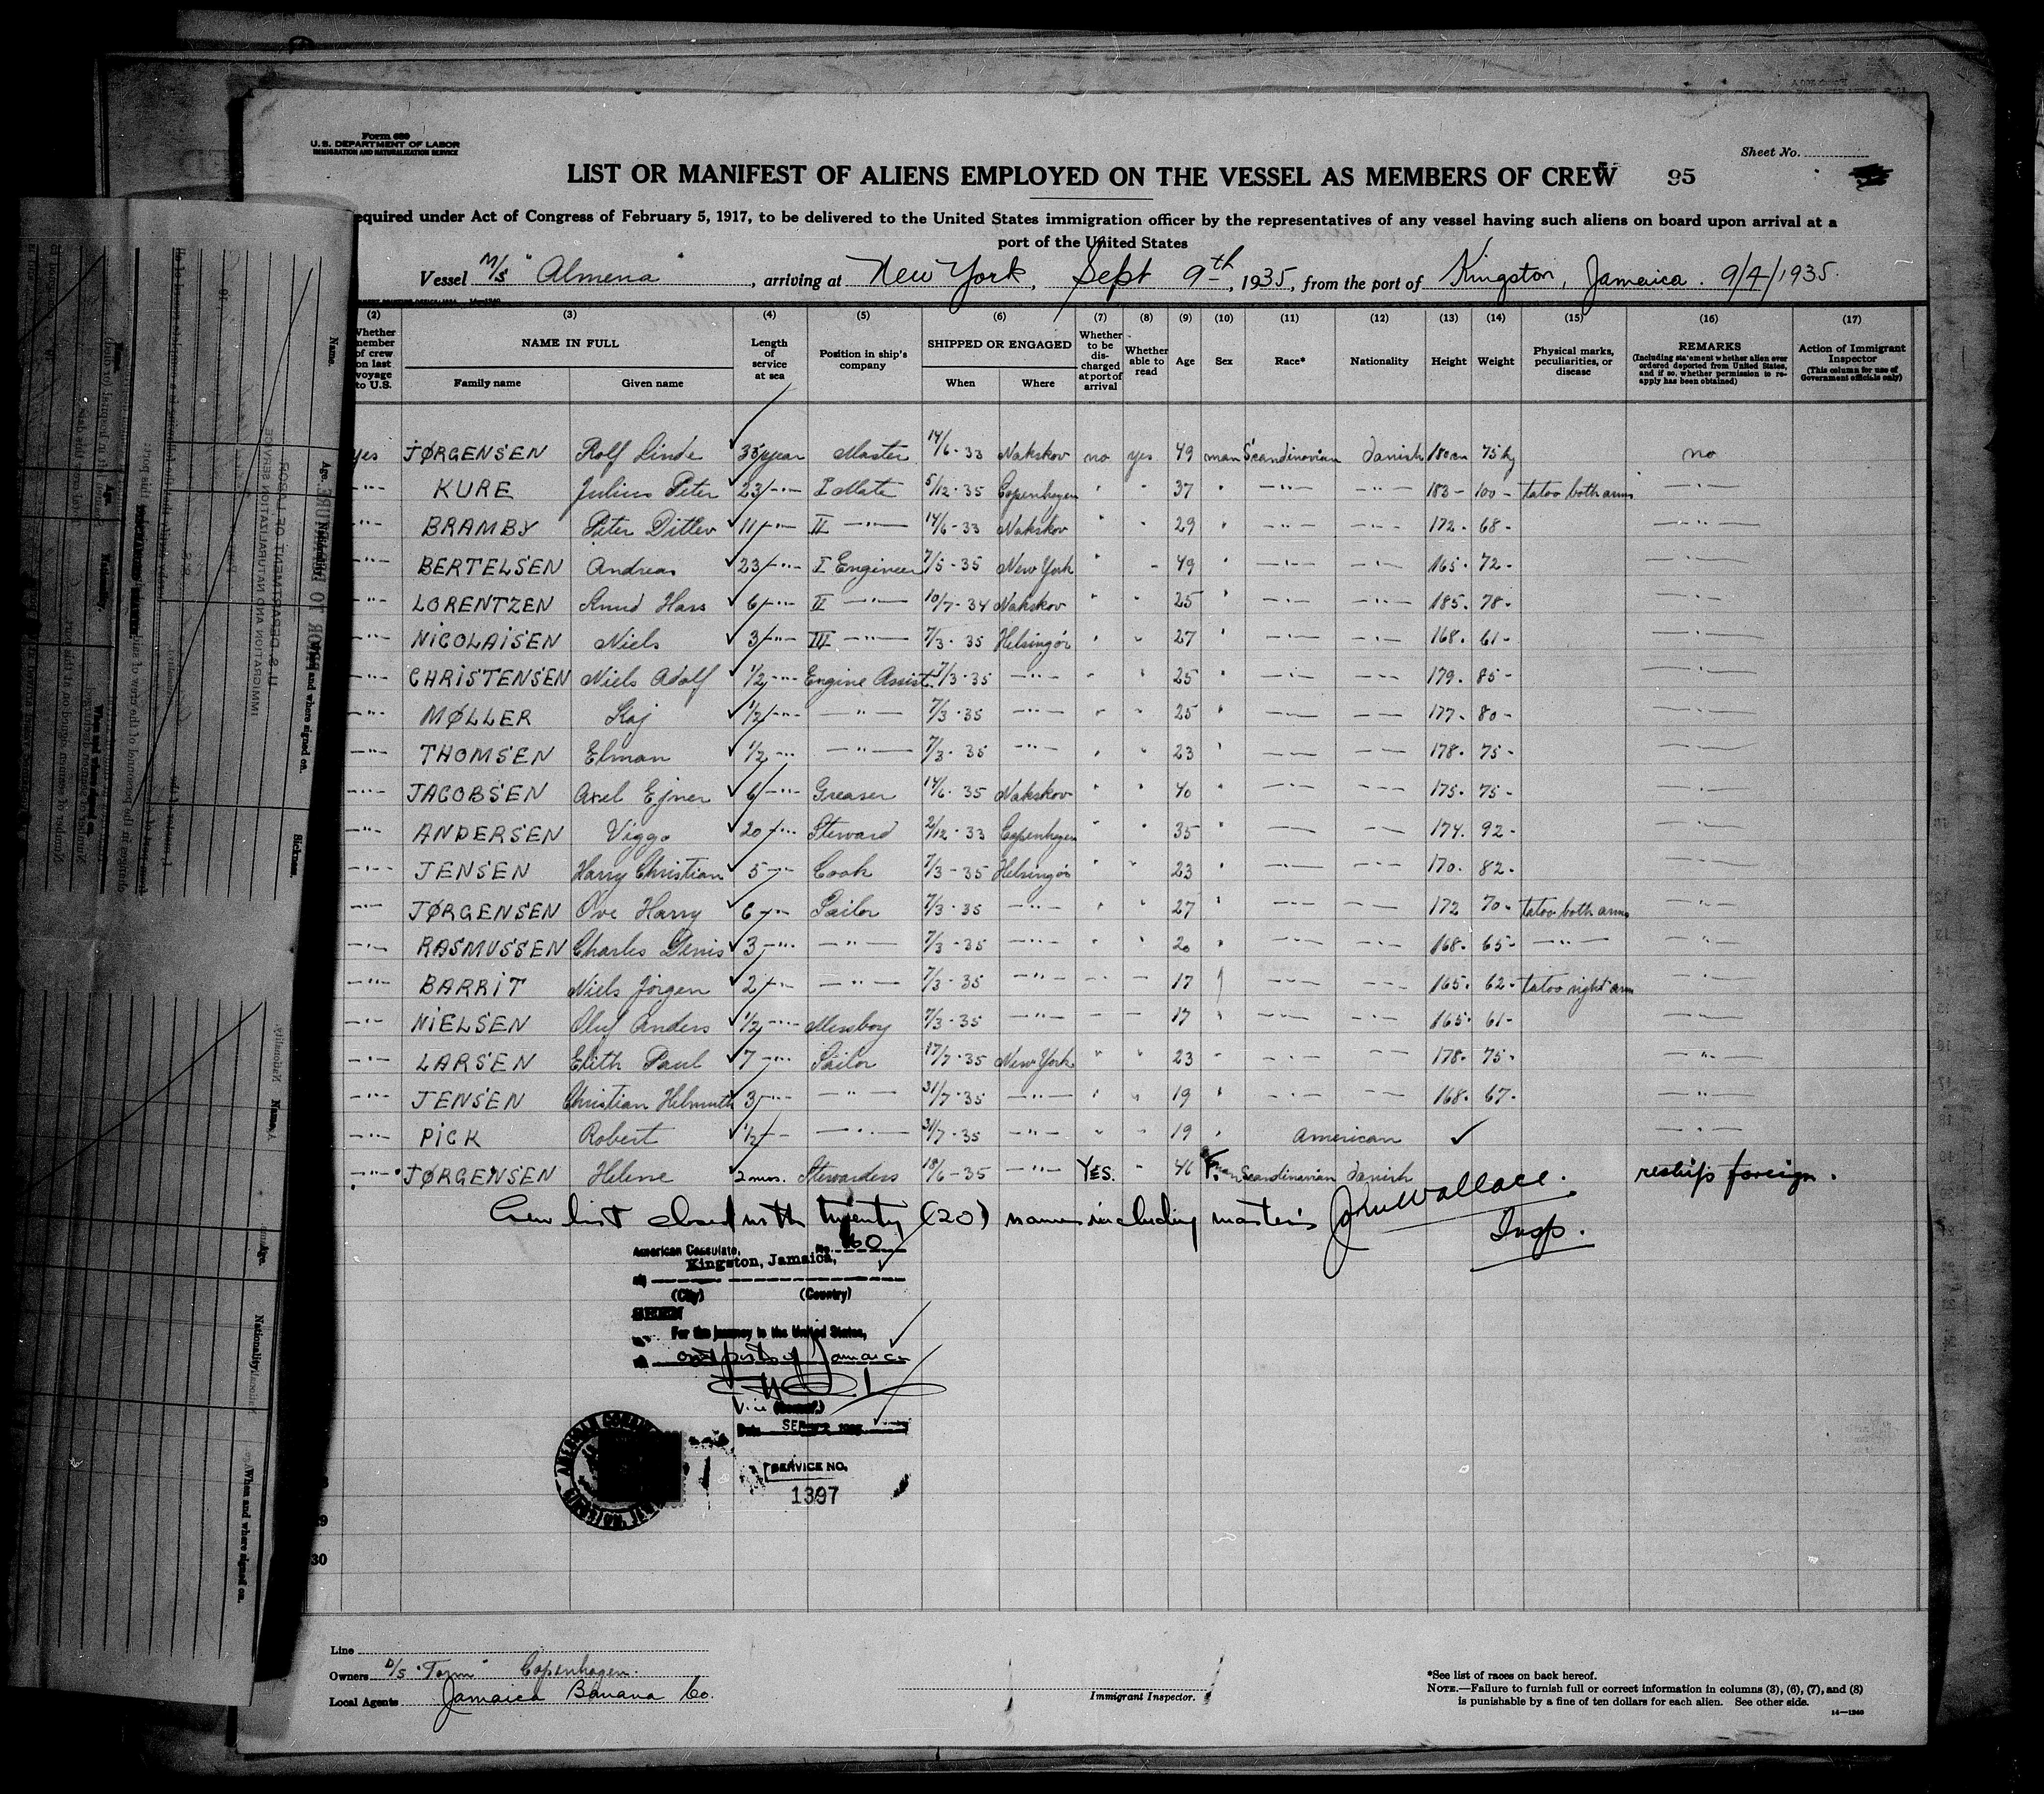 Form 689
U. S. DEPARTMENT OF LABOR
IMMIGRATION AND NATURALIZATION SERVICE
Sheet No.
LIST OR MANIFEST OF ALIENS EMPLOYED ON THE VESSEL AS MEMBERS OF CREW 95
equired under Act of Congress of February 5, 1917, to be delivered to the United States immigration officer by the representatives of any vessel having such aliens on board upon arrival at a
port of the United States
Vessel M/S "Almena", arriving at New York, Sept 9th, 1935, from the port of Kingston, Jamaica. 9/4/1935.
(2) (3) (4) (5) (6) (7) (8) (9) (10) (11) (12) (13) (14) (15) (16) (17)
Whether member of crew on last voyage to U.S. NAME IN FULL Family name Given name Length of service at sea Position in ship's company SHIPPED OR ENGAGED When Where Whether to be discharged at port of arrival Whether able to read Age Sex Race* Nationality Height Weight Physical marks, peculiarities, or disease REMARKS (Including statement whether alien ever ordered deported from United States, and if so, whether permission to re-apply has been obtained) Action of Immigrant Inspector (This column for use of Government officials only)
yes JØRGENSEN Rolf Linde 35 year Master 14/6-33 Nakskov no yes 49 man Scandinavian Danish 180cm 75kg no
-"- KURE Julius Peter 23 -"- I Mate 5/12-35 Copenhagen " " 37 " -"- -"- 183- 100- tatoo both arms -"-
-"- BRAMBY Peter Ditlev 11 -"- II -"- 14/6-33 Nakskov " " 29 " -"- -"- 172- 68- -"-
-"- BERTELSEN Andreas 23 -"- I Engineer 7/5-35 New York " - 49 " -"- -"- 165- 72- -"-
-"- LORENTZEN Knud Hans 6 -"- II -"- 10/7-34 Nakskov " " 25 " -"- -"- 185. 78- -"-
-"- NICOLAISEN Niels 3 -"- III -"- 7/3-35 Helsingör " " 27 " -"- -"- 168. 61- -"-
-"- CHRISTENSEN Niels Adolf 1/2 -"- Engine Assist. 7/3-35 -"- " " 25 " -"- -"- 179. 85- -"-
-"- MØLLER Kaj 1/2 -"- -"- 7/3-35 -"- " " 25 " -"- -"- 177. 80- -"-
-"- THOMSEN Elman 1/2 -"- -"- 7/3-35 -"- " " 23 " -"- -"- 178. 75- -"-
-"- JACOBSEN Axel Ejner 6 -"- Greaser 14/6-35 Nakskov " " 40 " -"- -"- 175. 75- -"-
-"- ANDERSEN Viggo 20 -"- Steward 2/12-33 Copenhagen " " 35 " -"- -"- 174. 92- -"-
-"- JENSEN Harry Christian 5 -"- Cook 7/3-35 Helsingör " " 23 " -"- -"- 170. 82- -"-
-"- JØRGENSEN Ove Harry 6 -"- Sailor 7/3-35 -"- " " 27 " -"- -"- 172 70- tatoo both arms -"-
-"- RASMUSSEN Charles Denis 3 -"- -"- 7/3-35 -"- " " 20 " -"- -"- 168. 65- -"- -"-
-"- BARRIT Niels Jörgen 2 -"- -"- 7/3-35 -"- - - 17 " -"- -"- 165. 62- tatoo right arm -"-
-"- NIELSEN Oluf Anders 1/2 -"- Messboy 7/3-35 -"- - - 17 " -"- -"- 165. 61- -"-
-"- LARSEN Edith Paul 7 -"- Sailor 17/7-35 New York " " 23 " -"- -"- 178. 75- -"-
-"- JENSEN Christian Helmuth 3 -"- -"- 31/7-35 -"- " " 19 " -"- -"- 168. 67- -"-
-"- PICK Robert 1/2 -"- -"- 31/7-35 -"- " " 19 " American -"-
-"- JØRGENSEN Helene 2 mos. Stewardess 18/6-35 -"- YES. " 46 F. Scandinavian Danish reships foreign.
Crew list closed with twenty (20) names including master's John Wallace.
Insp.
American Consulate, No. 60
Kingston, Jamaica,
(City) (Country)
SEEN
For the journey to the United States,
outports of Jamaica
Vice (Consul)
Date SEP 1935
SERVICE NO.
1397
AMERICAN CONSUL
KINGSTON
9
30
Line
Owners D/S "Torm" Copenhagen.
Local Agents Jamaica Banana Co.
Immigrant Inspector.
*See list of races on back hereof.
NOTE.—Failure to furnish full or correct information in columns (3), (6), (7), and (8)
is punishable by a fine of ten dollars for each alien. See other side.
14—1240